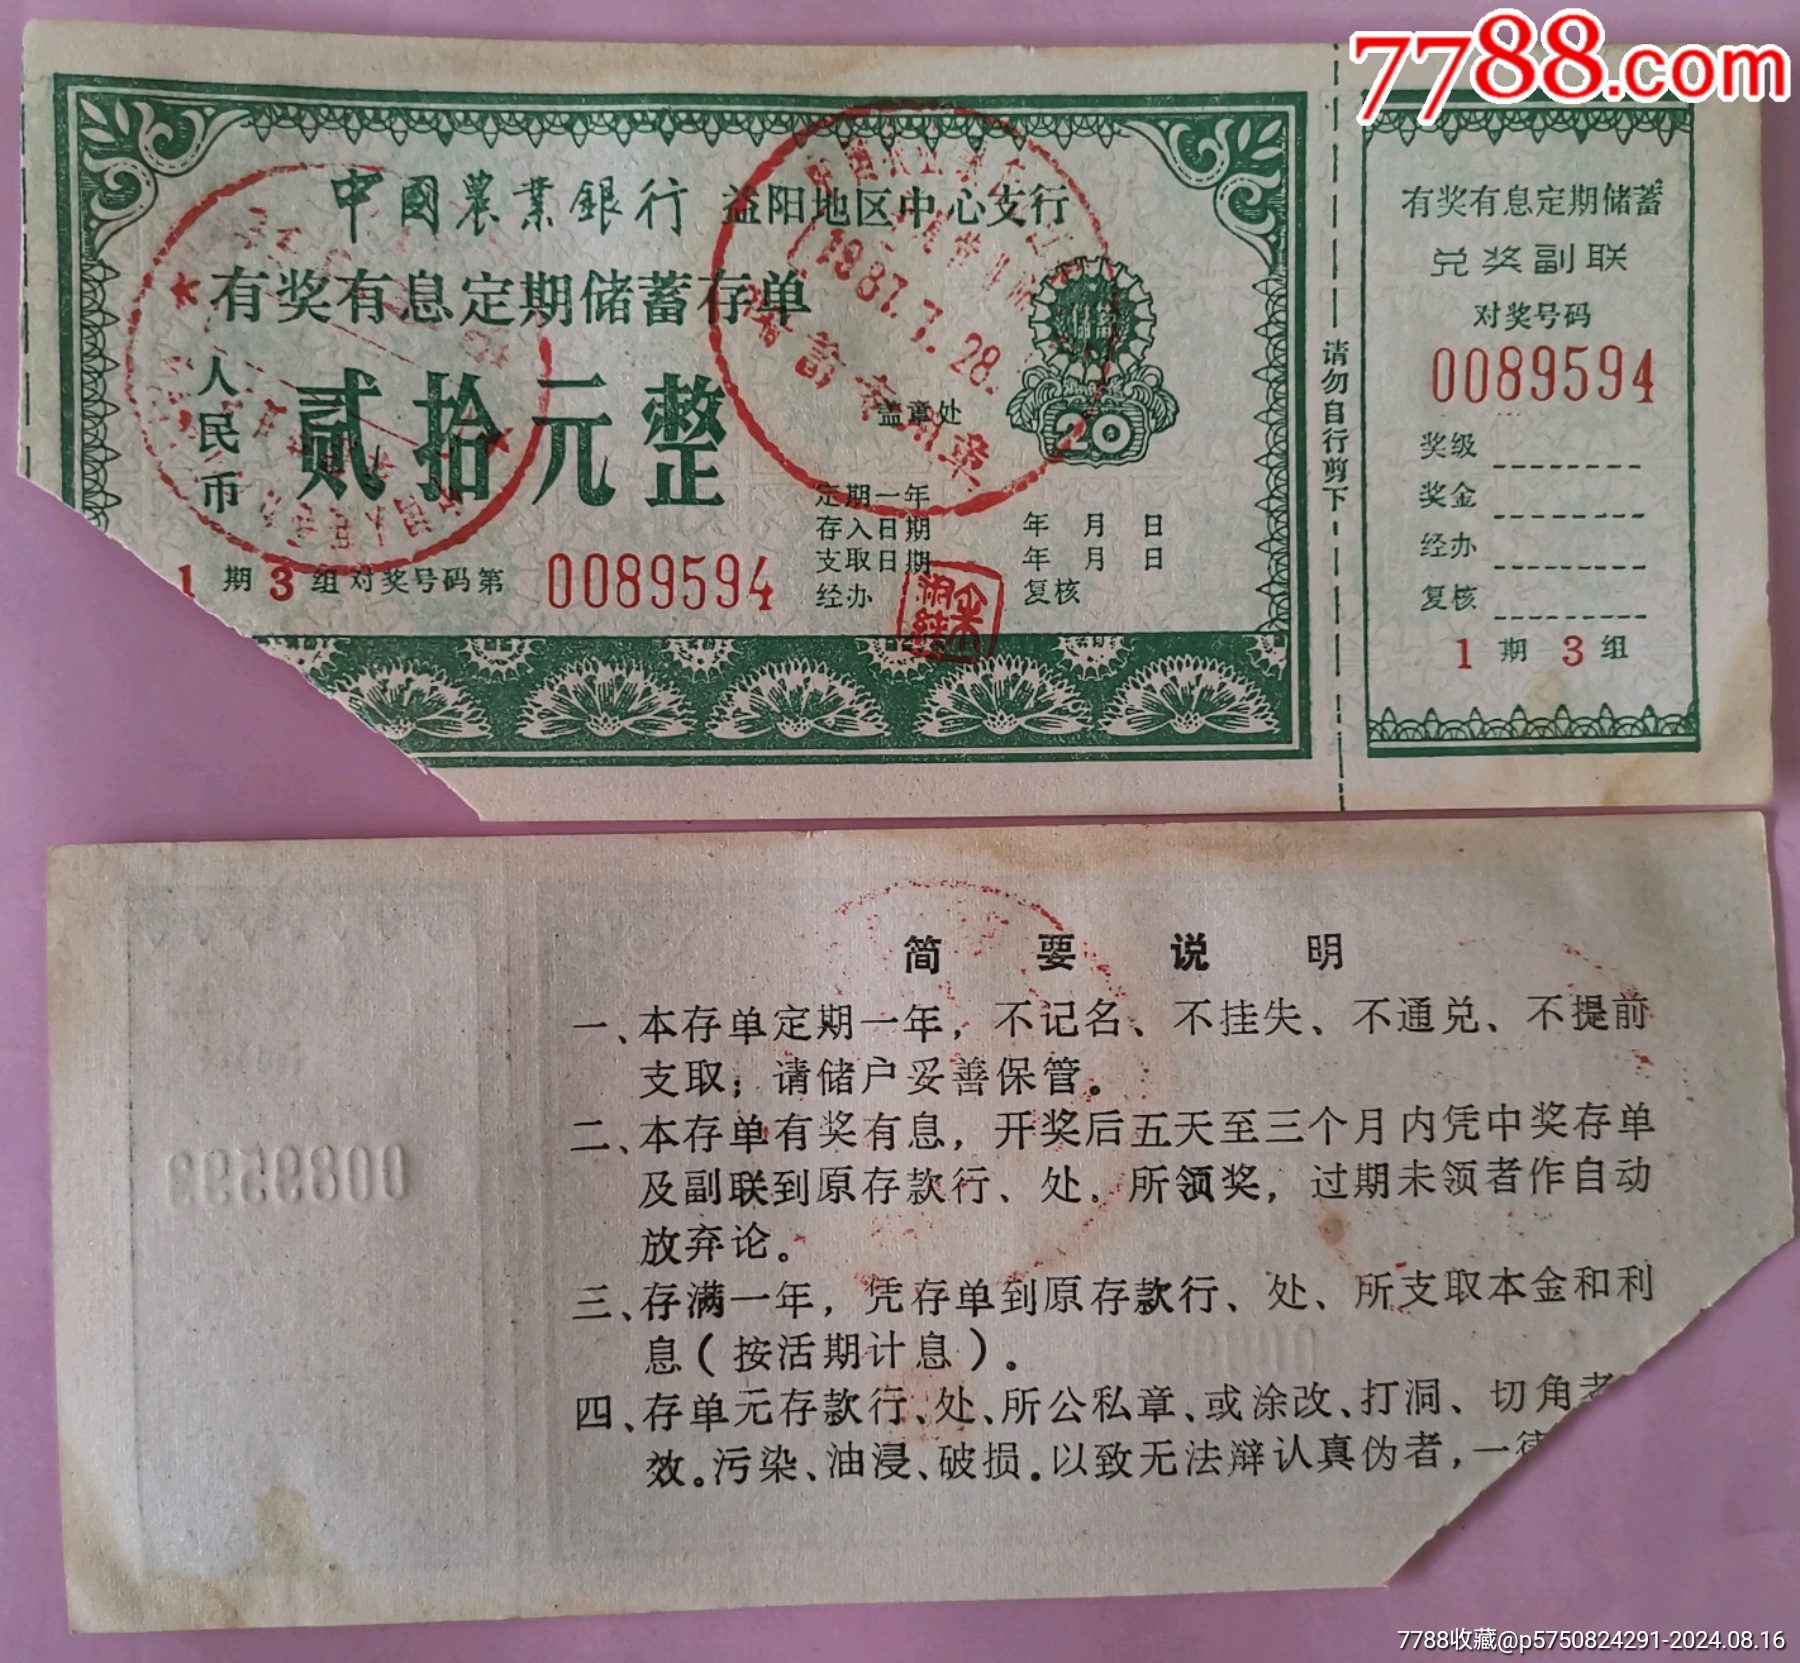 7788.com
中國農業銀行 益阳地区中心支行
有奖有息定期储蓄存单
人民币
贰拾元整
1987.7.28.
储蓄
20
盖章处
定期一年
存入日期 年 月 日
支取日期 年 月 日
经办 复核
1 期 3 组 对奖号码第 0089594
请勿自行剪下
有奖有息定期储蓄
兑奖副联
对奖号码
0089594
奖级
奖金
经办
复核
1 期 3 组
简要说明
一、本存单定期一年，不记名、不挂失、不通兑、不提前
支取；请储户妥善保管。
二、本存单有奖有息，开奖后五天至三个月内凭中奖存单
及副联到原存款行、处、所领奖，过期未领者作自动
放弃论。
三、存满一年，凭存单到原存款行、处、所支取本金和利
息（按活期计息）。
四、存单元存款行、处、所公私章、或涂改、打洞、切角者
效。污染、油浸、破损。以致无法辩认真伪者，一律
7788收藏@p5750824291-2024.08.16